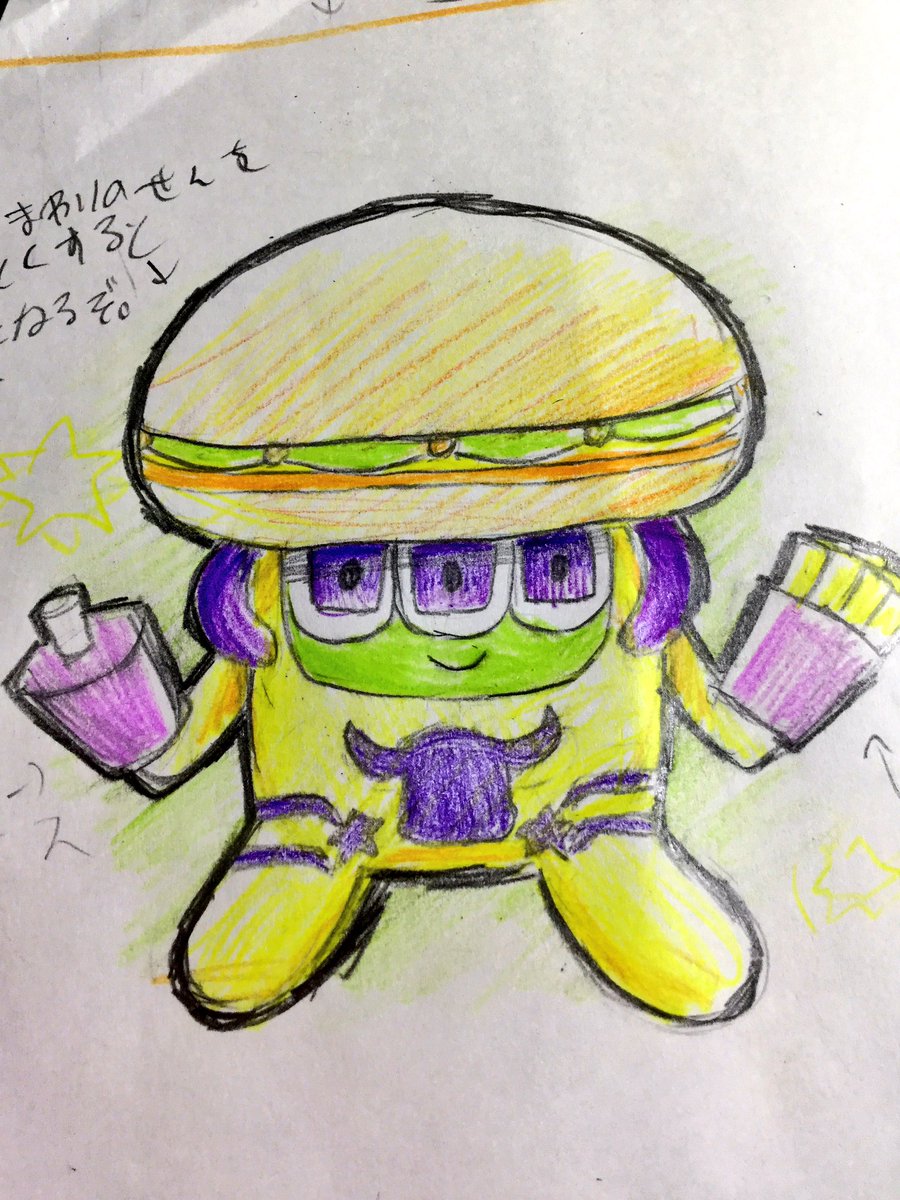 まわりのせんを
くすると
ねるぞ。
ス